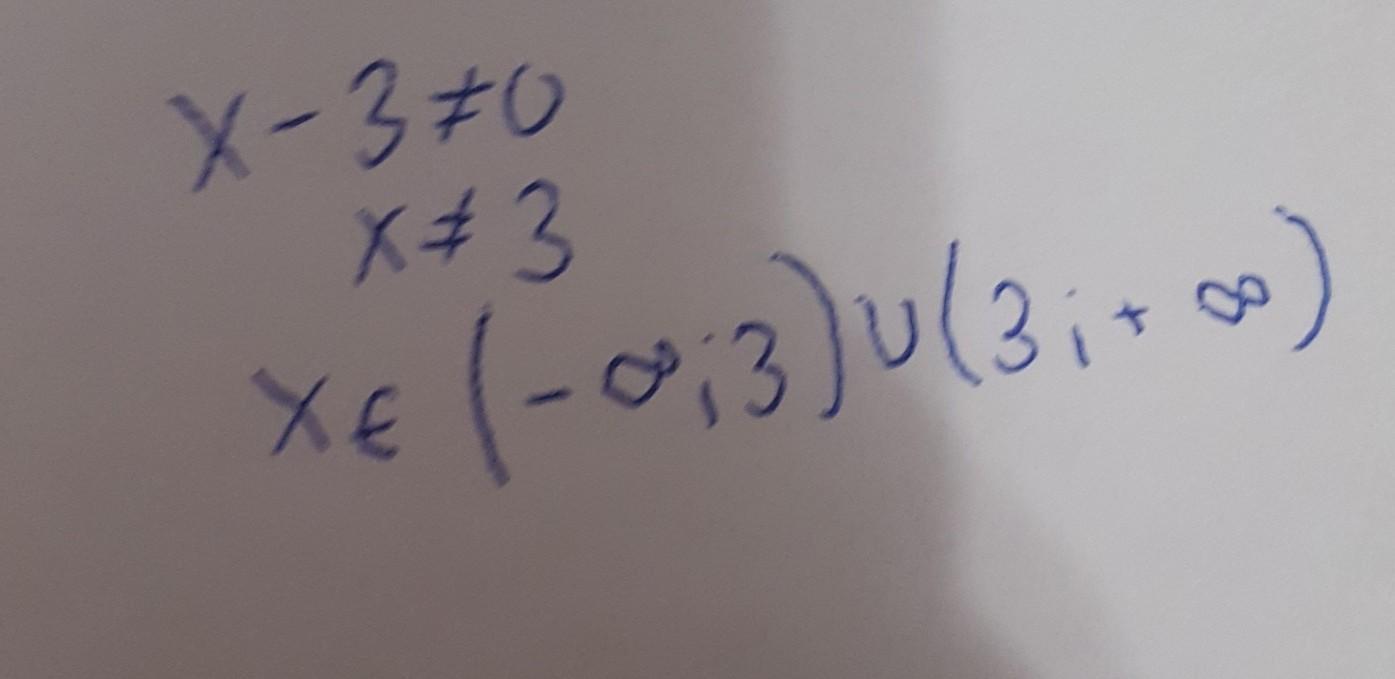 x-3≠0
x≠3
x∈(-∞;3)∪(3;+∞)